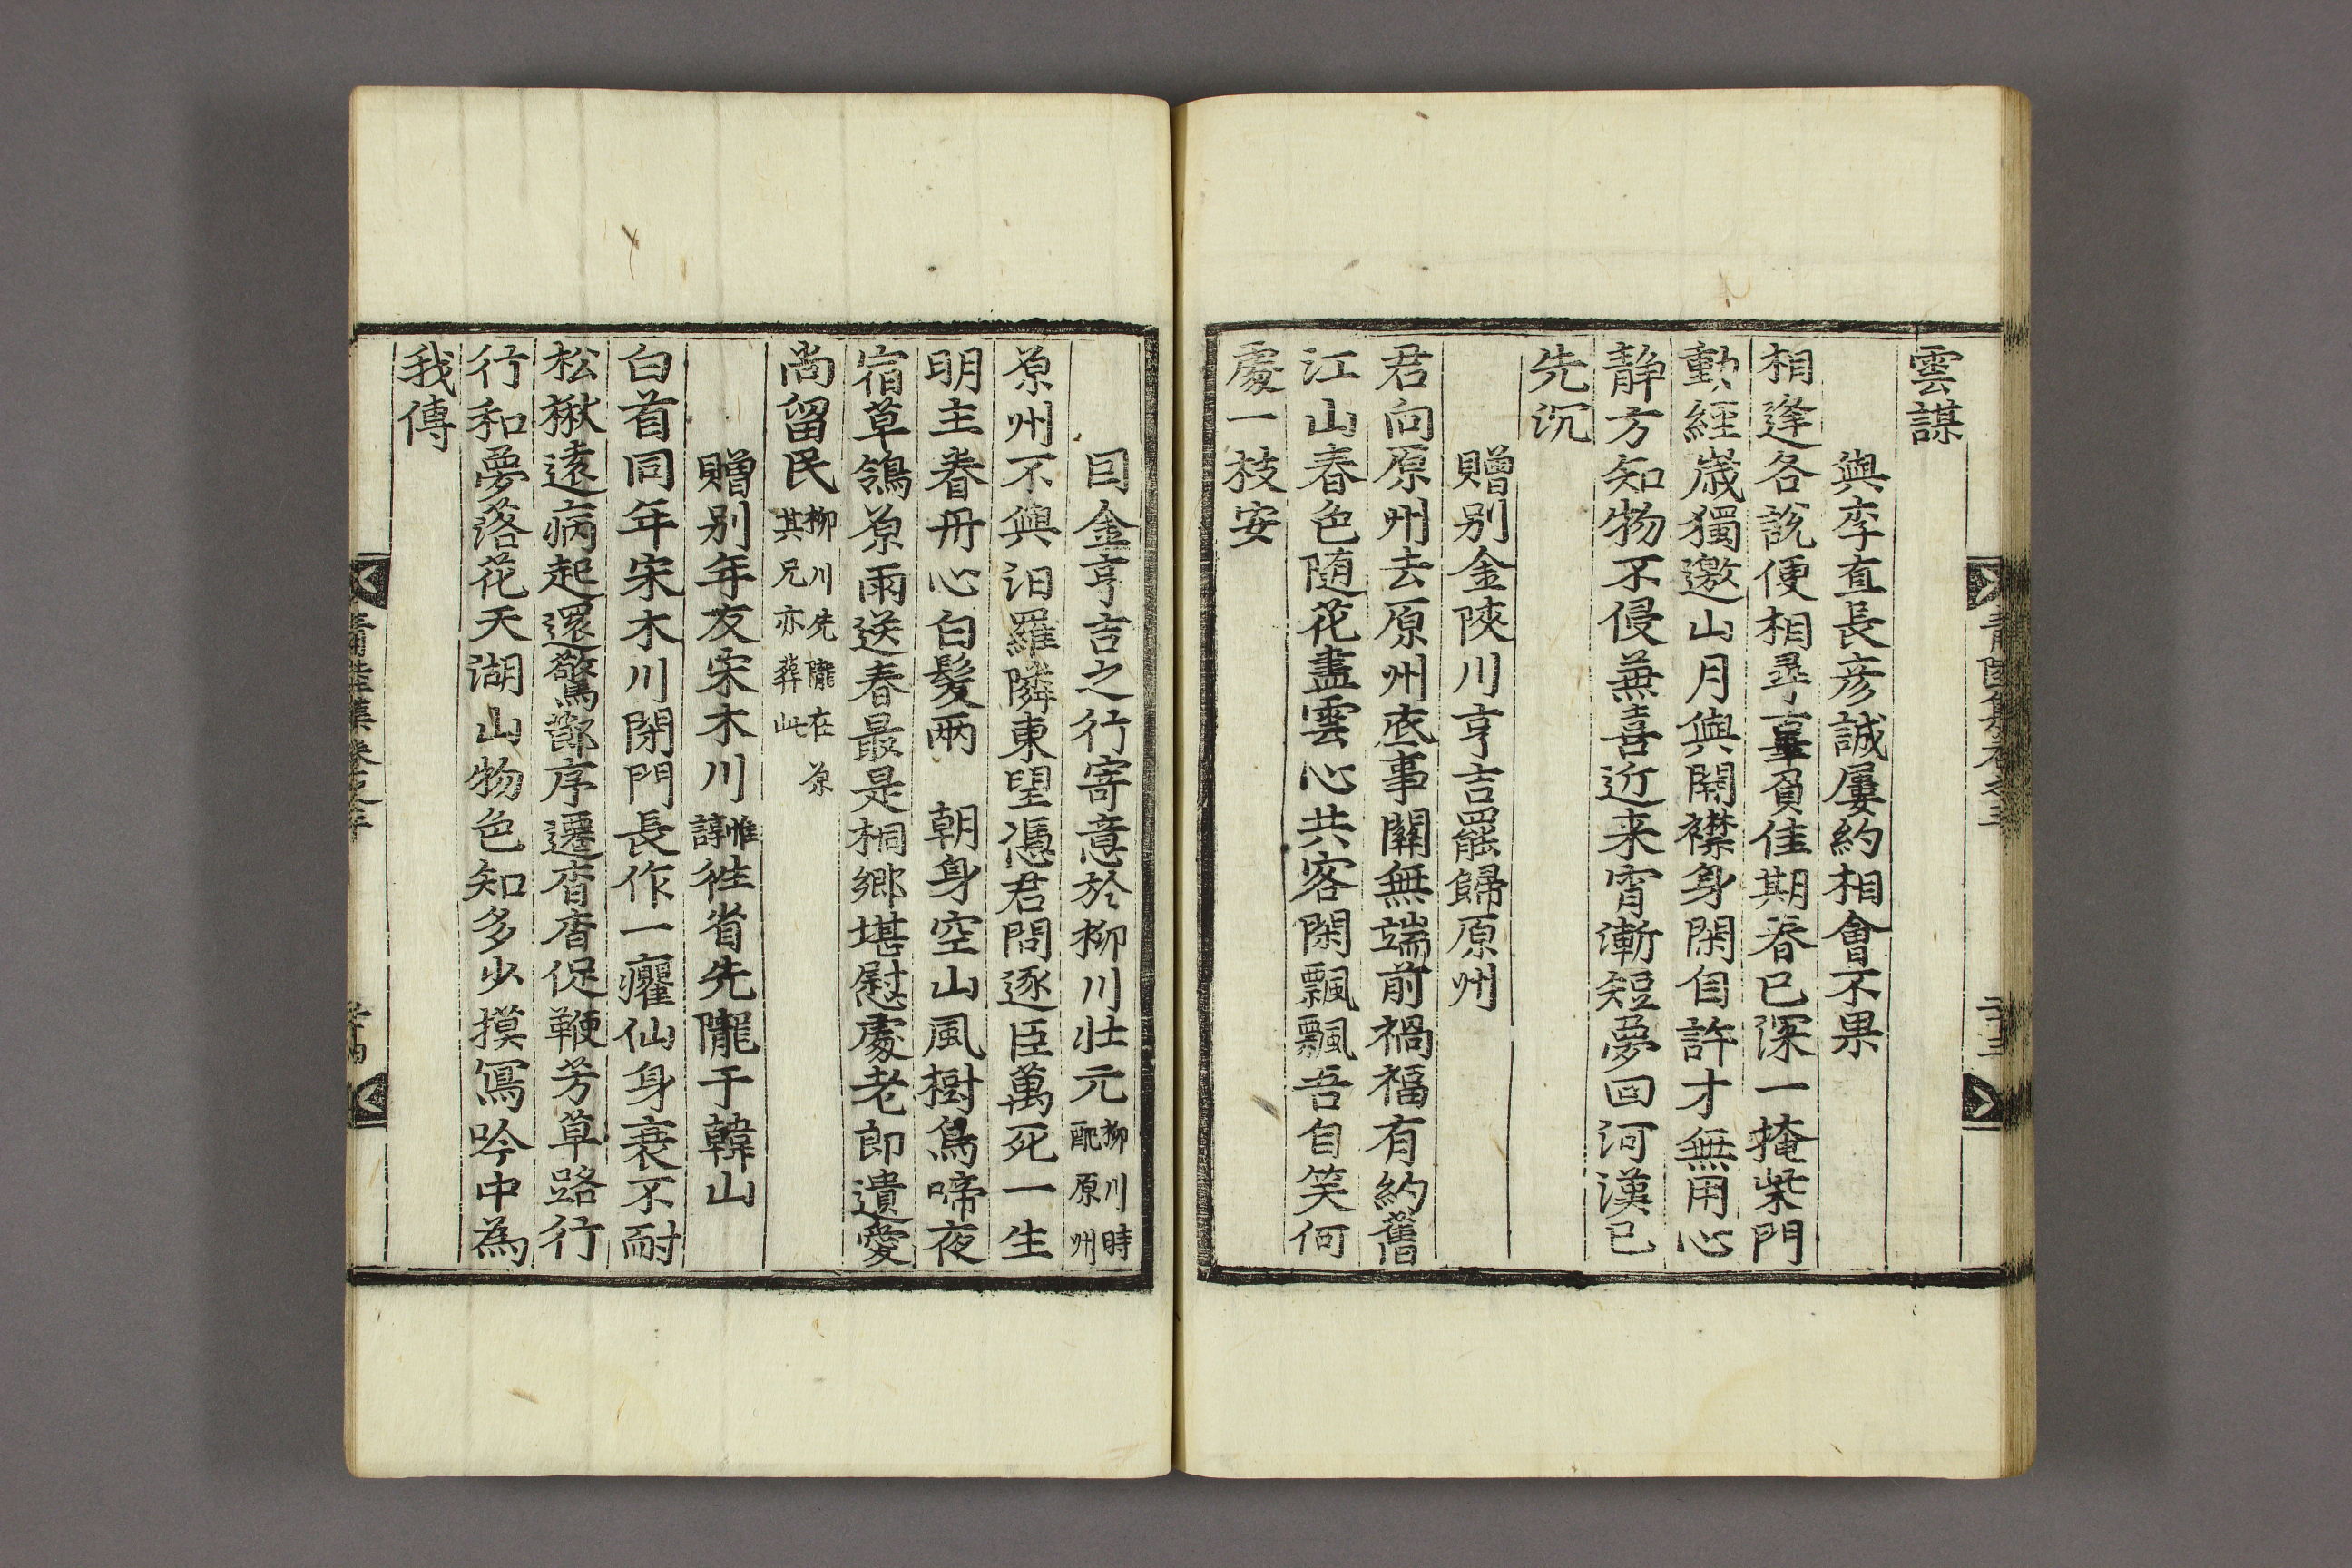 雲謀
與李直長彦誠屢約相會不果
相逢各說便相尋辜負佳期春已深一掩柴門
動經歲獨邀山月與開襟身閑自許才無用心
静方知物不侵無喜近来宵漸短夢回河漢已
先沉
贈别金陜川亨吉罷歸原州
君向原州去原州底事關無端前禍福有約舊
江山春色随花盡雲心共客閑飄飄吾自笑何
處一枝安
因金亨吉之行寄意於柳川壯元柳川時配原州
原州不與汨羅隣東望憑君問逐臣萬死一生
明主眷丹心白髮兩 朝身空山風樹烏啼夜
宿草鴒原雨送春最是桐鄉堪慰處老郎遺愛
尚留民柳川先隴在原其兄亦葬此
贈别年友宋木川惟諄徃省先隴于韓山
白首同年宋木川閉門長作一癯仙身衰不耐
松楸遠病起還驚節序遷杳杳促鞭芳草路行
行和夢落花天湖山物色知多少摸寫吟中為
我傳